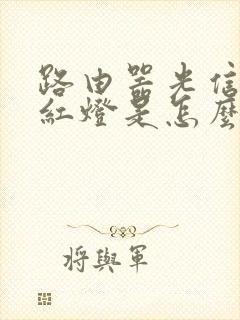 路由器光信
紅燈是怎麼
將與軍